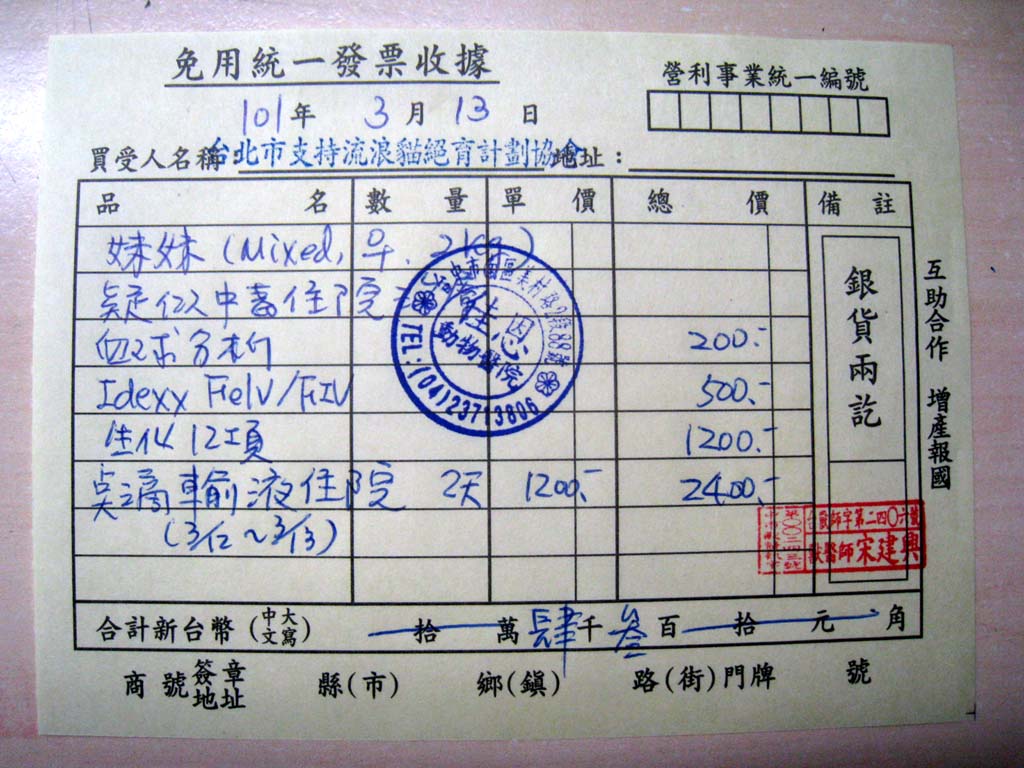 免用統一發票收據
營利事業統一編號
101年 3月 13日
買受人名稱:台北市支持流浪貓絕育計劃協會 地址:
品名 數量 單價 總價 備註
妹妹 (Mixed, 早, 2kg)
疑似中毒住院
血球分析 200.-
Idexx FelV/FIV 500.-
生化12項 1200.-
點滴輸液住院 2天 1200.- 2400.-
(3/12~3/13)
銀貨兩訖
互助合作 增產報國
動物醫院
TEL:(04)23713806
獸醫師宋建興
合計新台幣(中文大寫) 拾 萬肆千叁百 拾 元 角
商號簽章地址 縣(市) 鄉(鎮) 路(街)門牌 號